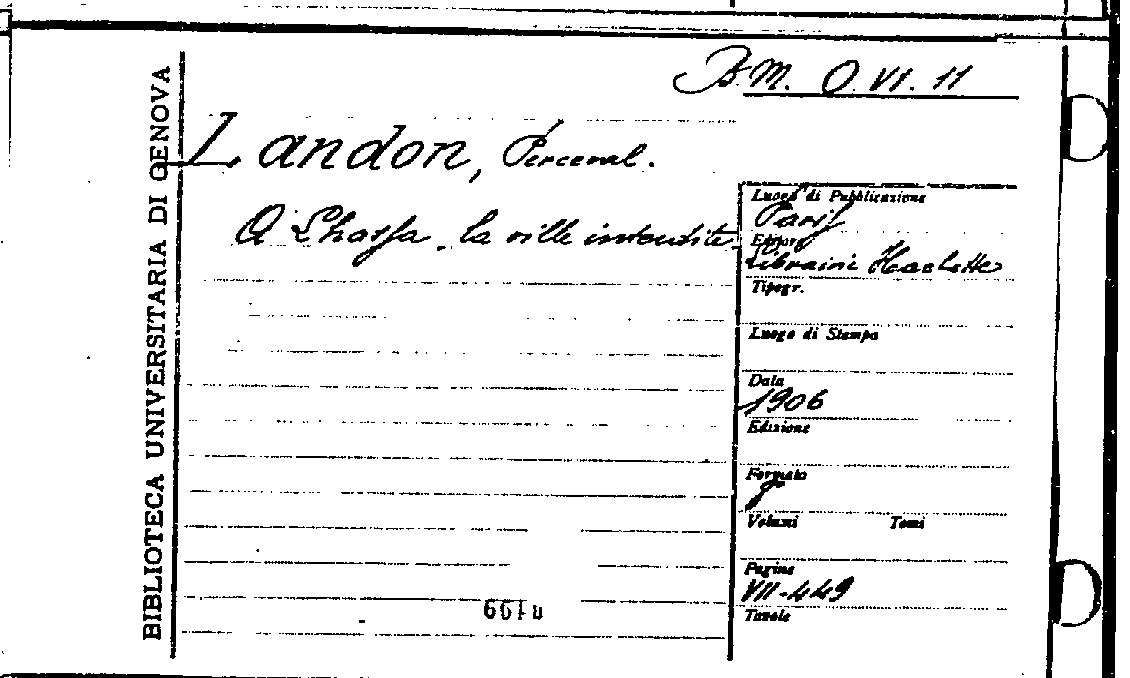 BIBLIOTECA UNIVERSITARIA DI GENOVA
B.M. O. VI. 11
Landon, Perceval.
A Lhassa, la ville interdite.
Luogo di Pubblicazione
Paris
Editore
Librairie Hachette
Tipogr.
Luogo di Stampa
Data
1906
Edizione
Formato
Volumi Tomi
Pagine
VII-449
Tavole